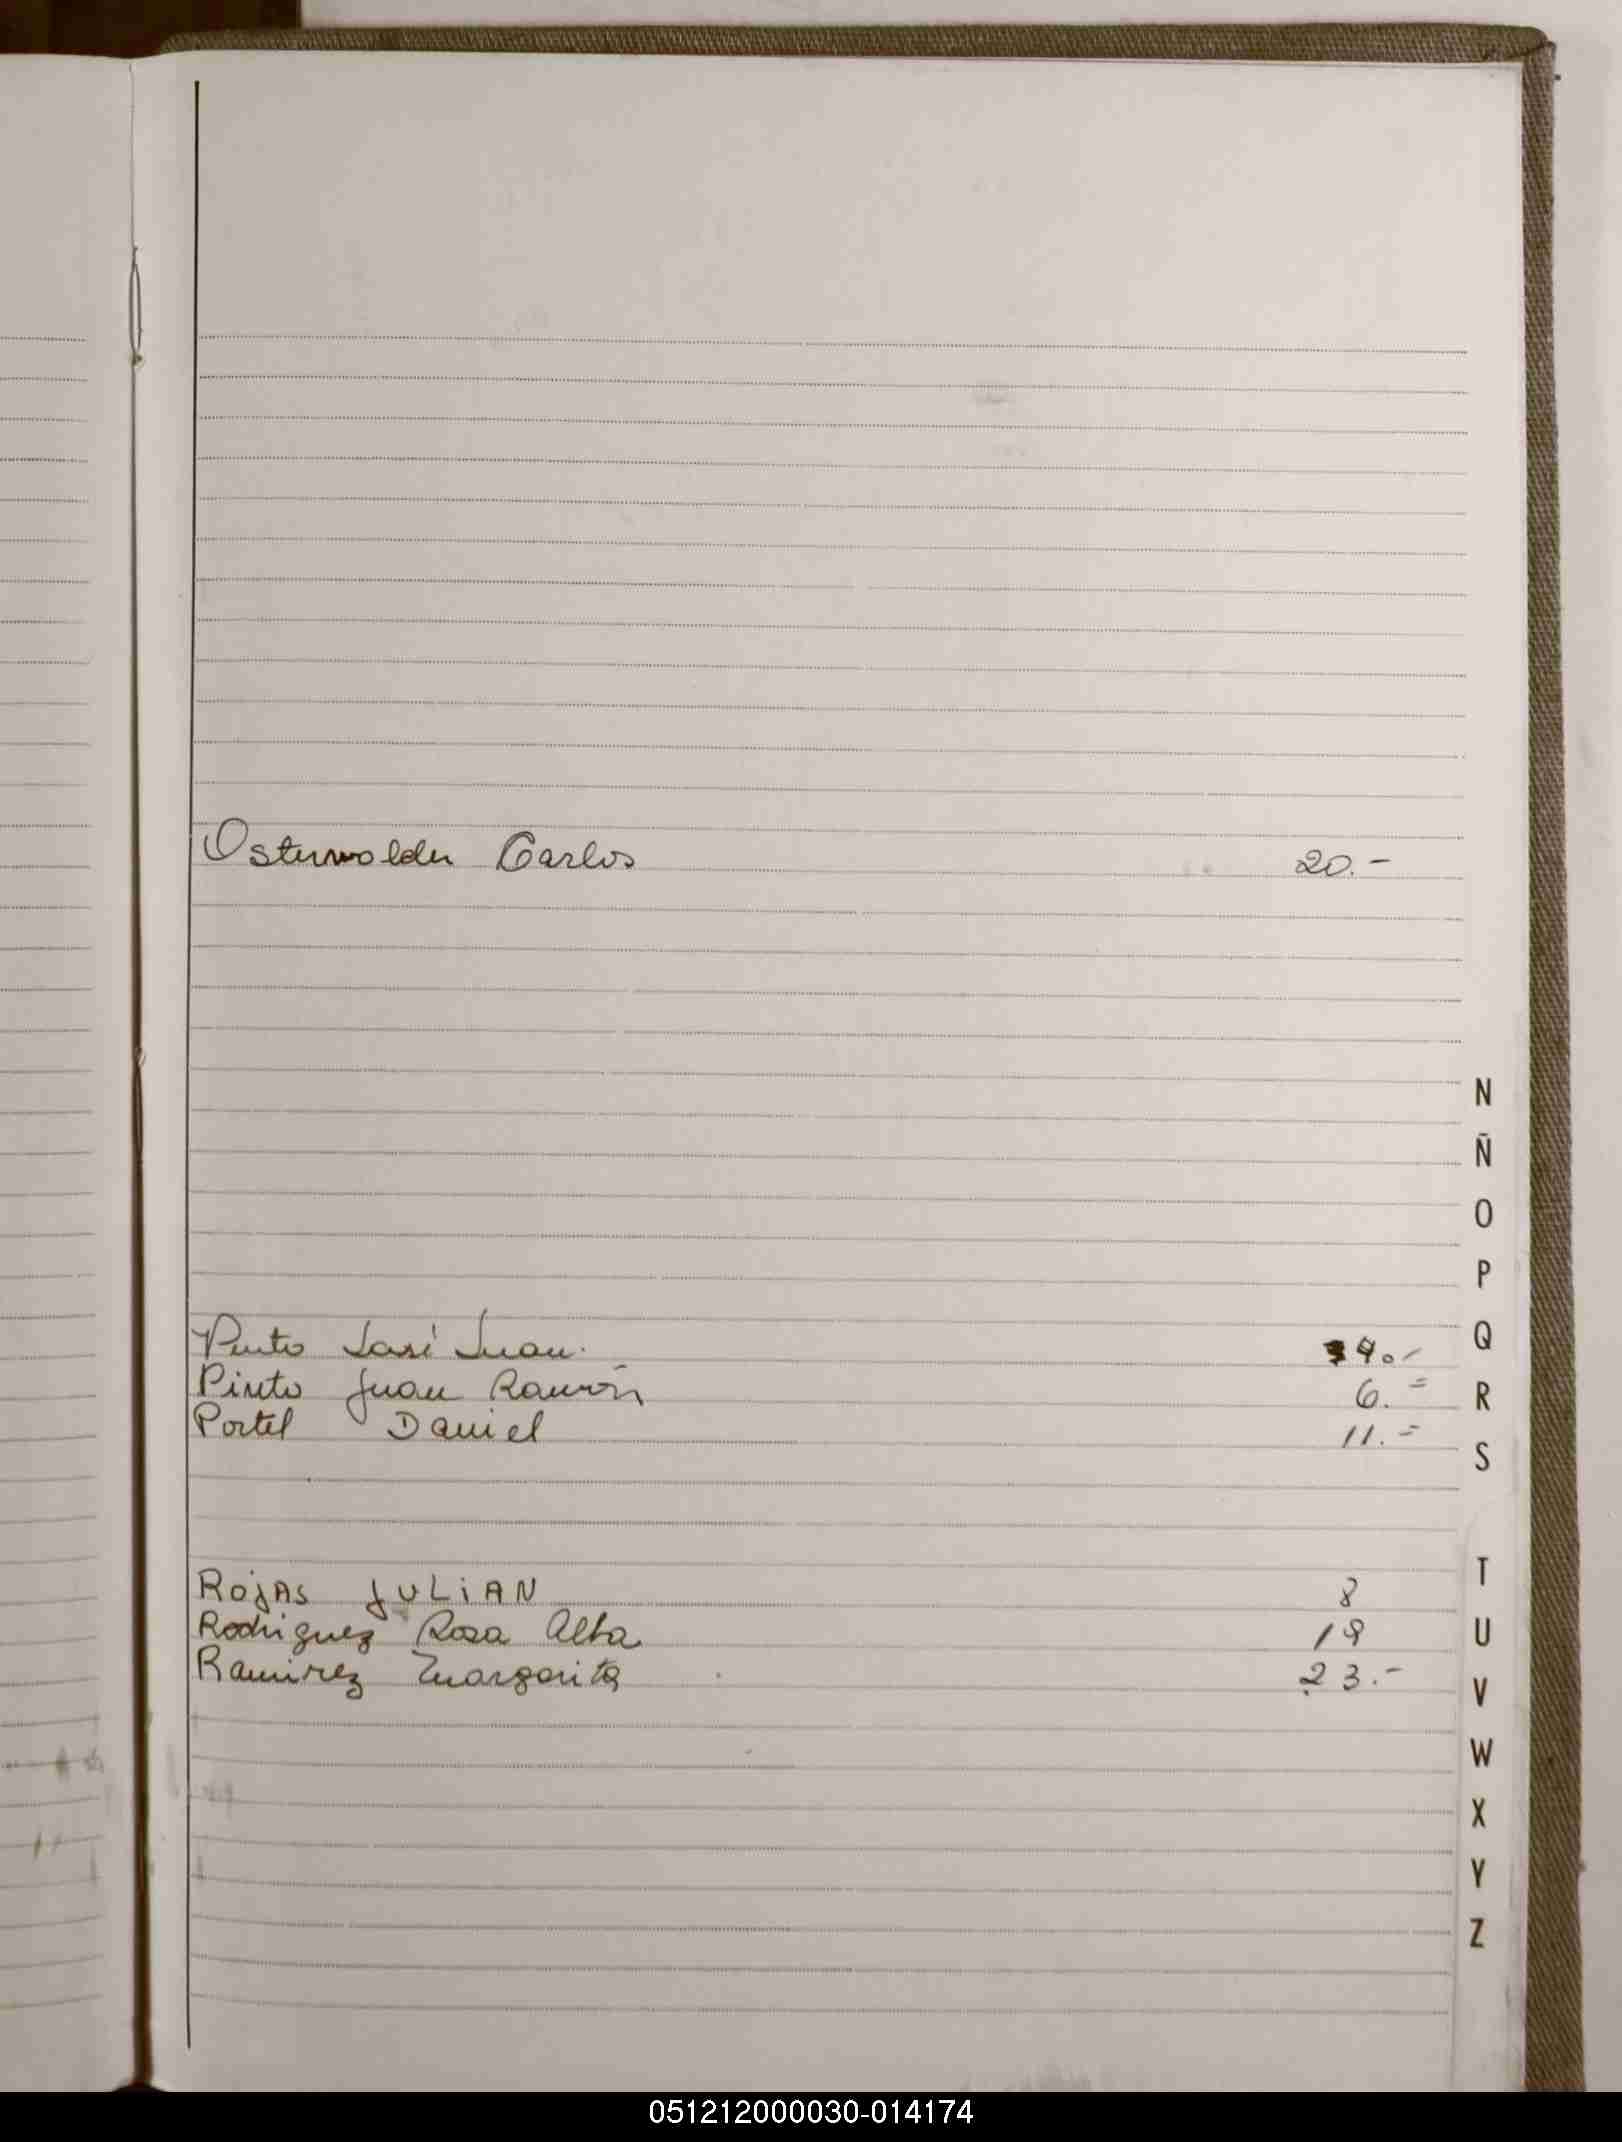 Osterwolder Carlos 20.-
N
Ñ
O
P
Pinto José Juan. 9.-
Q
Pinto Juan Ramón 6.=
R
Portel Daniel 11.=
S
T
ROjAS JULiAN 8
Rodriguez Rosa Alba 19
U
Ramirez Margarita 23.-
V
W
X
Y
Z
051212000030-014174